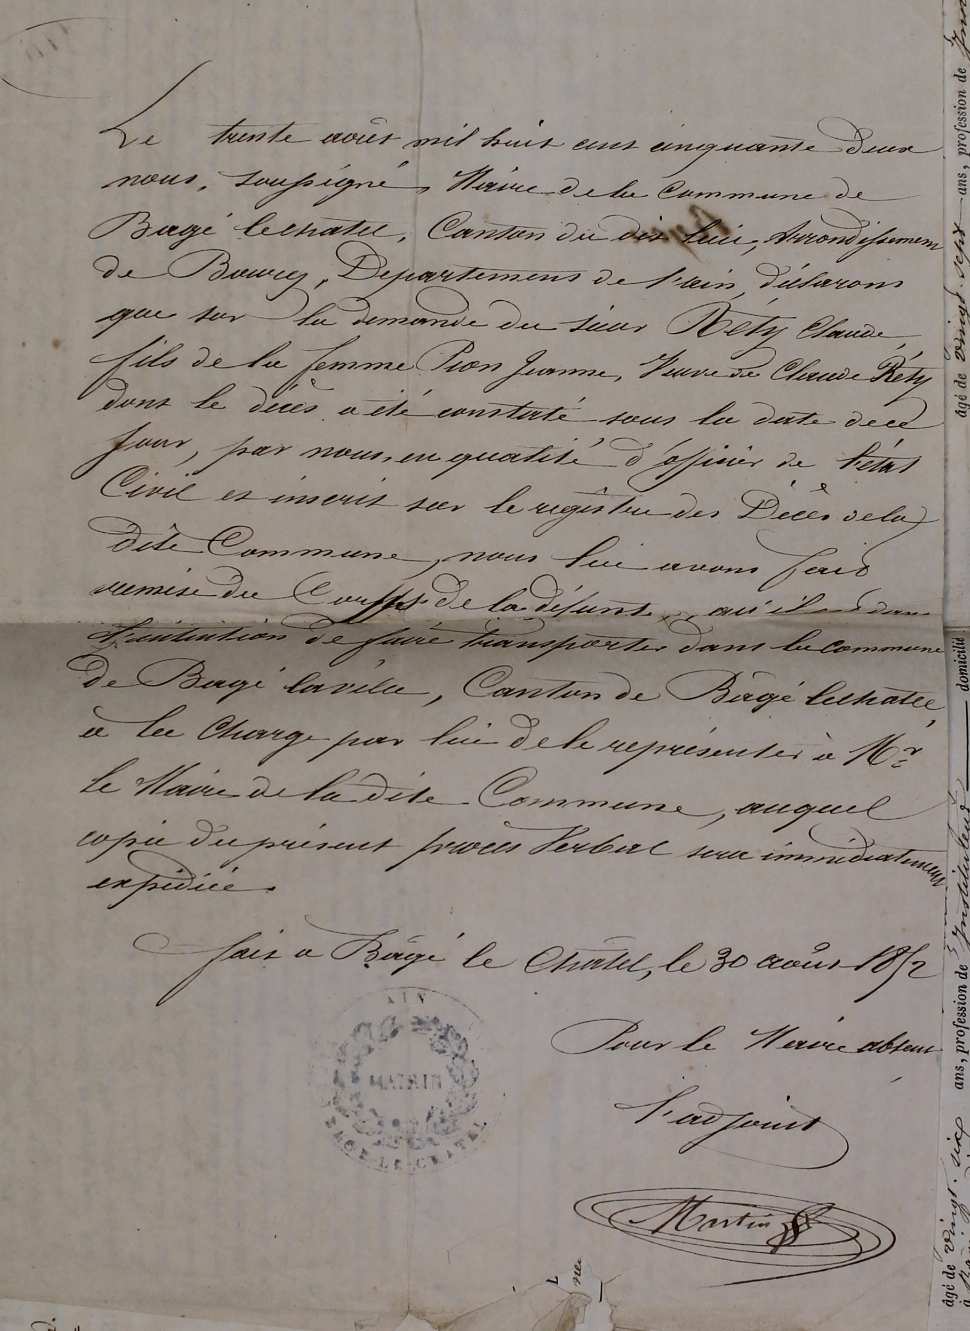 Le trente août mil huit cent cinquante deux
nous, soussigné, Maire de la Commune de
Bagé lechatel, Canton du dit lieu, Arrondissement
de Bourg, Departement de l'ain, déclarons
que sur la demande du sieur Réty Claude,
fils de la femme Pion Jeanne, Veuve de Claude Réty
dont le décès a été constaté sous la date de ce
jour, par nous, en qualité d'officier de l'état
Civil et inscrit sur le registre des Décès de la
dite Commune, nous lui avons fait
remise du Corps de la défunte, qu'il est dans
l'intention de faire transporter dans la commune
de Bagé laville, Canton de Bâgé lechatel,
à la Charge par lui de le représenter à Mr
le Maire de la dite Commune, auquel
copie du présent procès Verbal sera immédiatement
expédiée.
fait a Bâgé le Châtel, le 30 août 1852
Pour le Maire absent
l'adjoint
Martin
AIN
MAIRIE
BAGÉ-LE-CHATEL
âgé de vingt-sept ans, profession de
domicilié
âgé de vingt-six ans, profession de Instituteur